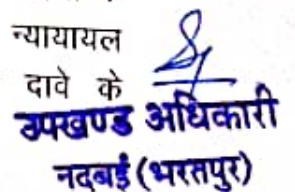 न्यायायल
दावे के
उपखण्ड अधिकारी
नदबई (भरतपुर)